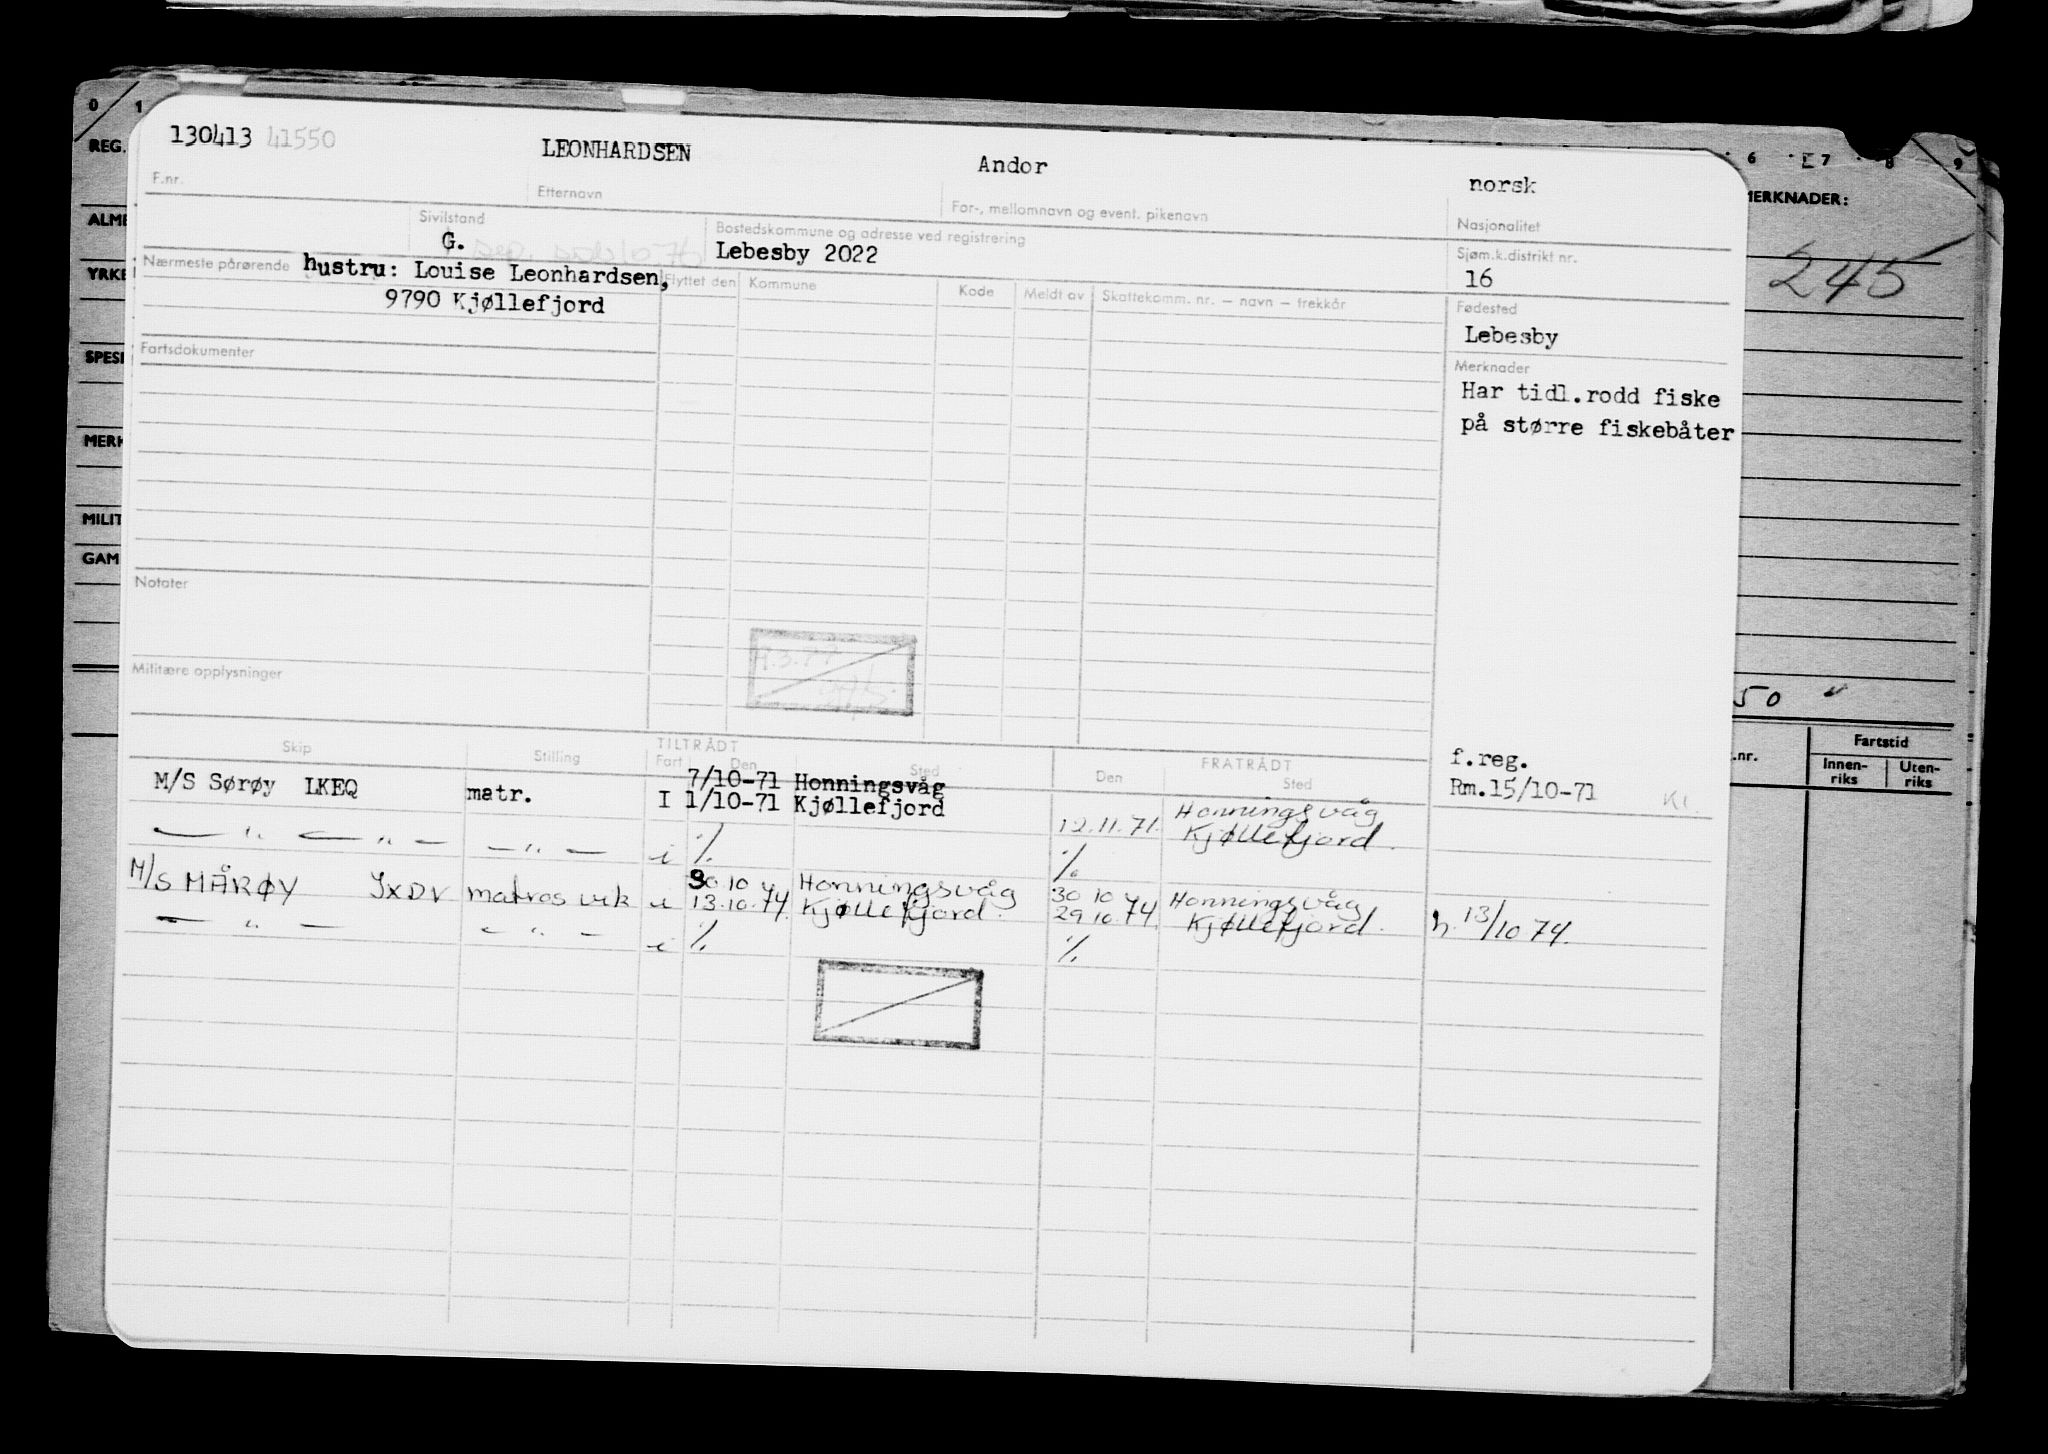 0 1 6 7 8 9
REG.
MERKNADER:
ALME
YRKE
SPESI
MERK
MILIT
GAM
245
50 "
.nr. Fartstid
Innen-riks Uten-riks
130413 41550 LEONHARDSEN Andor norsk
F.nr. Etternavn For-, mellomnavn og event. pikenavn Nasjonalitet
Sivilstand Bostedskommune og adresse ved registrering Sjøm.k.distrikt nr.
G. sep. Lebesby 2022 16
Nærmeste pårørende hustru: Louise Leonhardsen, Flyttet den Kommune Kode Meldt av Skattekomm. nr. — navn — trekkår Fødested
9790 Kjøllefjord Lebesby
Fartsdokumenter Merknader
Har tidl.rodd fiske
på større fiskebåter
Notater
9.3.77
Militære opplysninger
Skip Stilling TILTRÅDT FRATRÅDT f.reg.
Fart Den Sted Den Sted
M/S Sørøy LKEQ matr. 7/10-71 Honningsvåg Rm.15/10-71 Kl.
I 1/10-71 Kjøllefjord 12.11.71. Honningsvåg
Kjøllefjord.
— " — " — — " — i % %
M/S MÅRØY JXDV matros vik i 30 10 Honningsvåg 30 10 Honningsvåg
13.10.74. Kjøllefjord. 29 10.74. Kjøllefjord. h. 13/10 74.
— " — — " — i % %